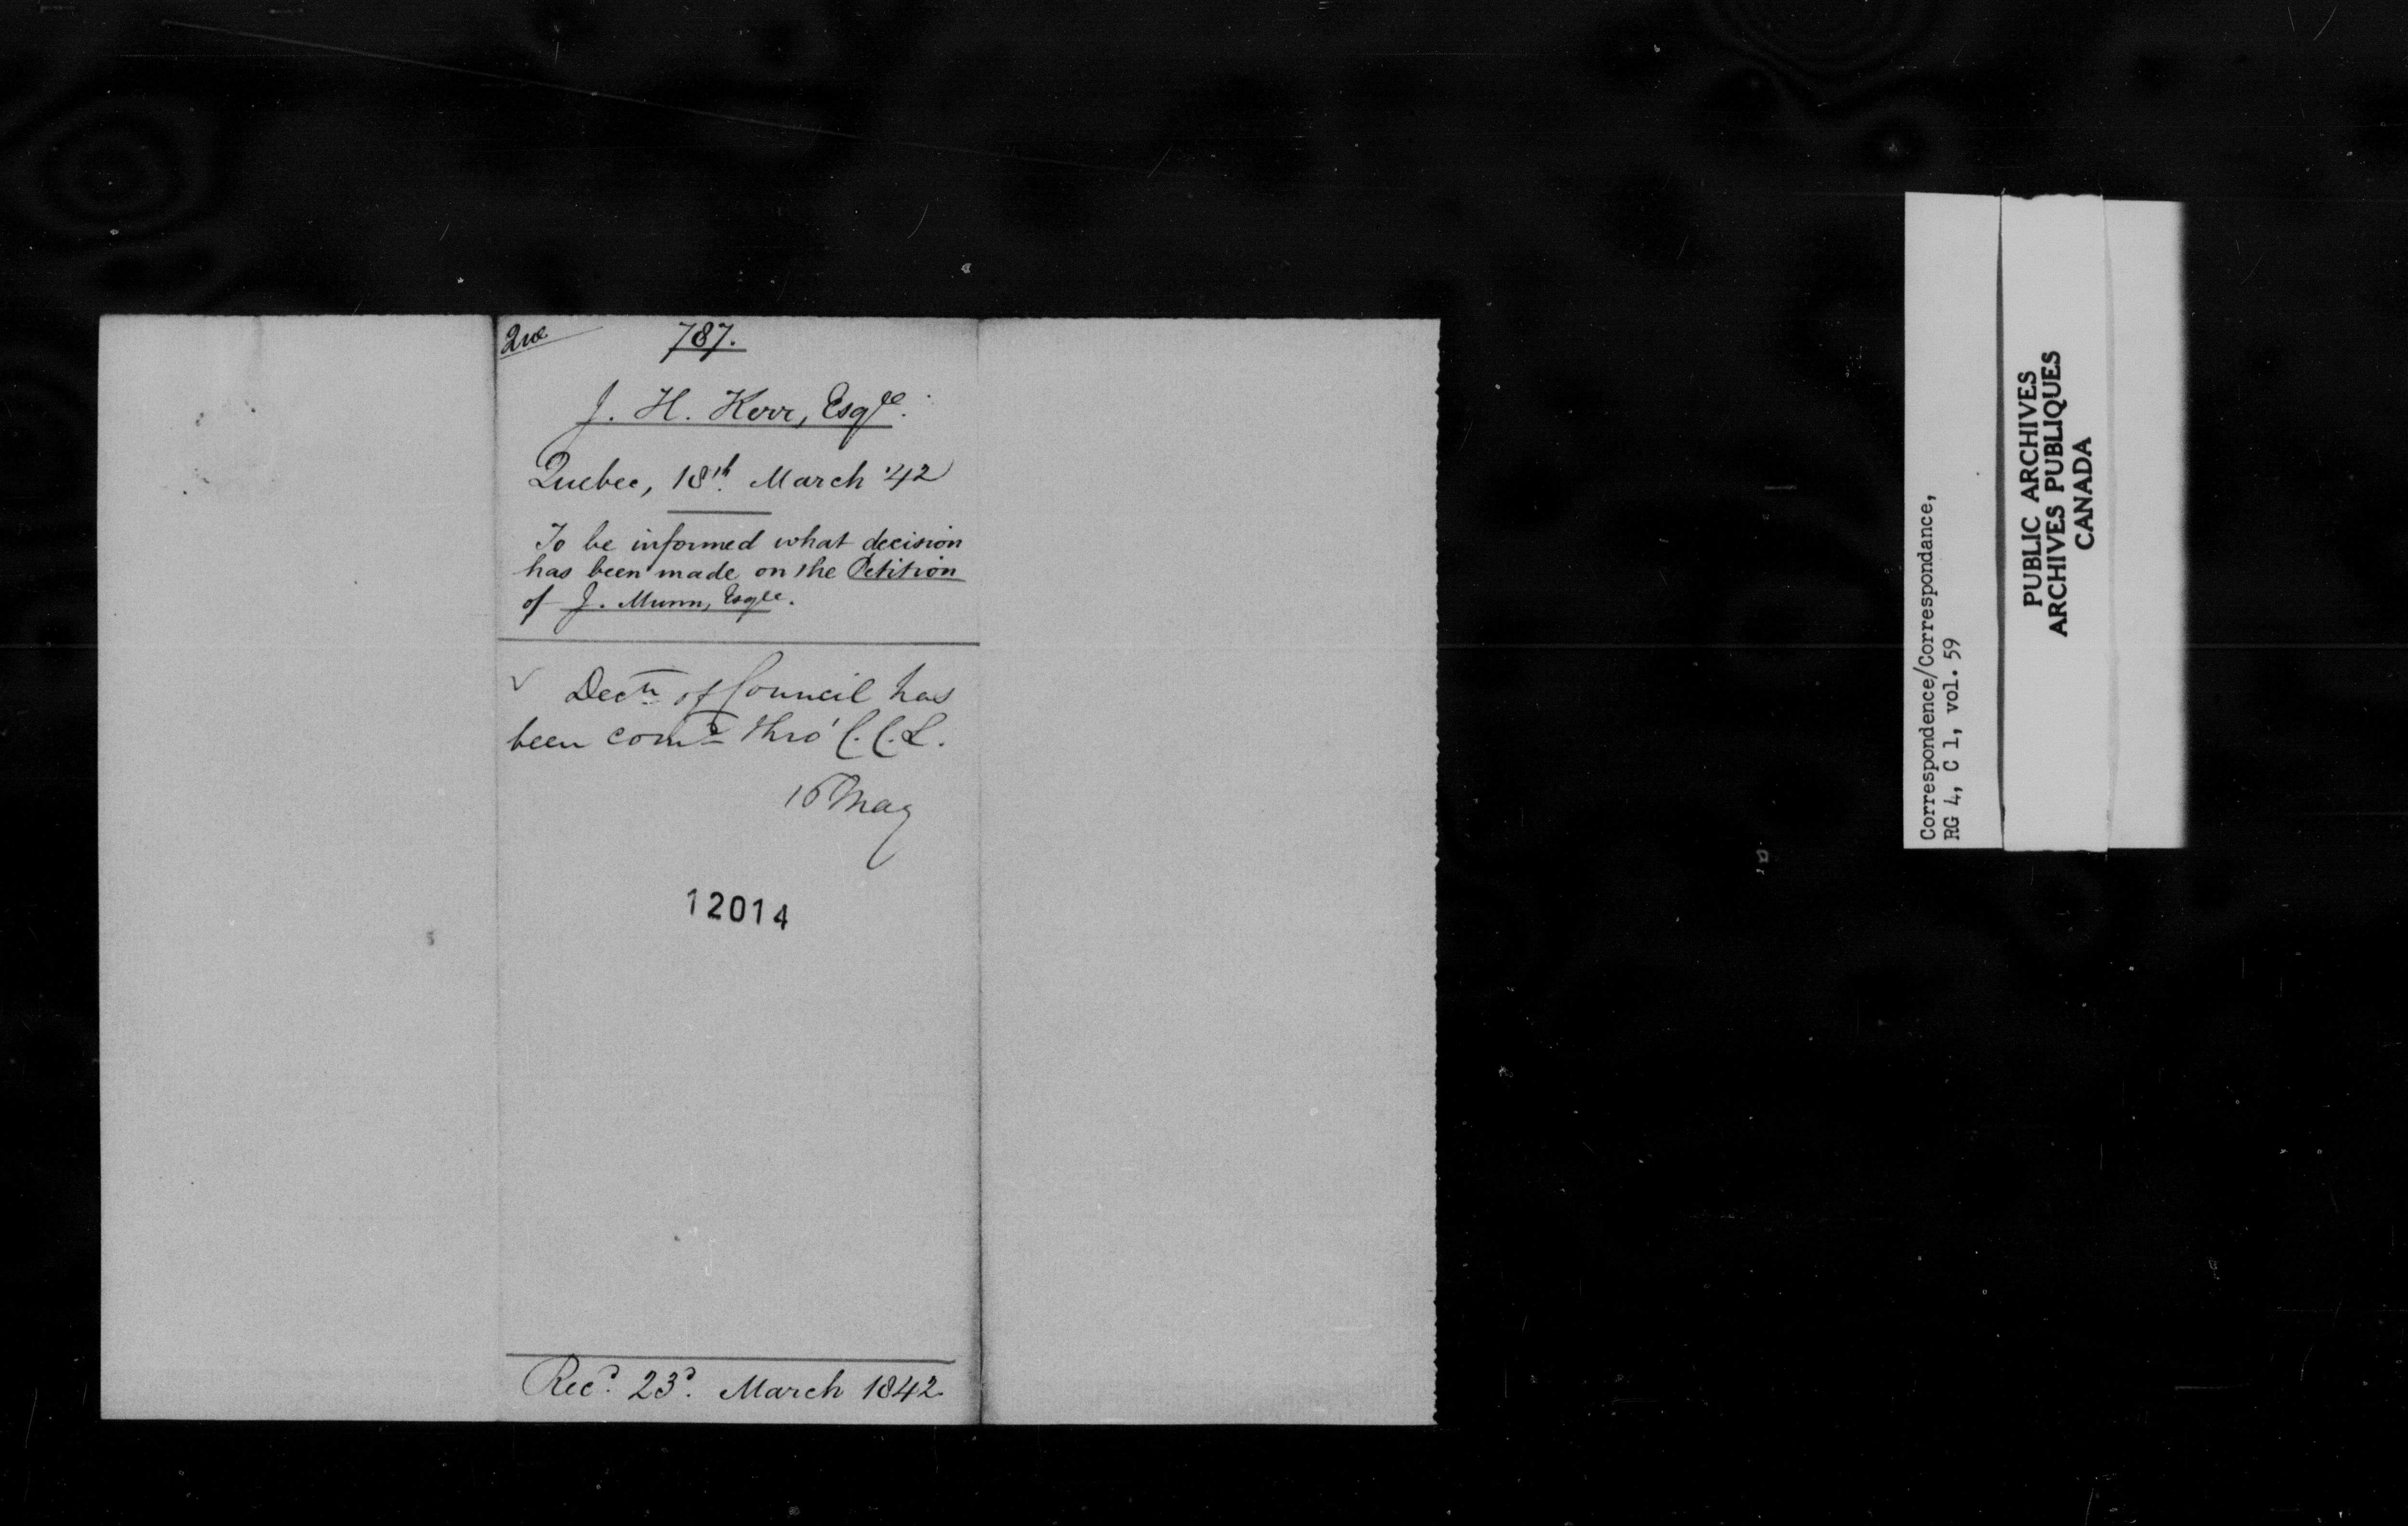 Que
787.
J. H. Kerr, Esqre.
Quebec, 18th March '42
To be informed what decision
has been made on the Petition
of J. Munn, Esqre.
Decn of Council has
been comd thro' C.C.L.
16 May
12014
Recd. 23d. March 1842
Correspondence/Correspondance,
RG 4, C 1, vol. 59
PUBLIC ARCHIVES
ARCHIVES PUBLIQUES
CANADA